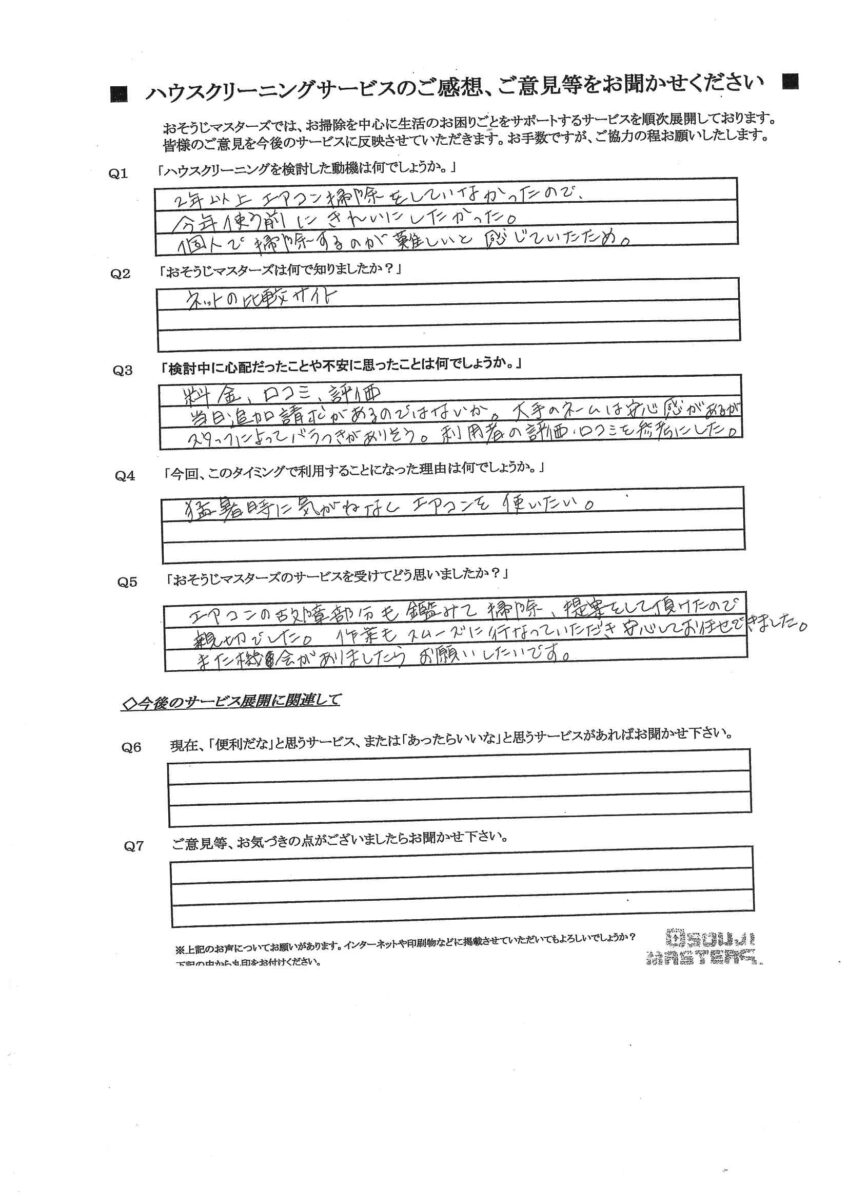 ■ ハウスクリーニングサービスのご感想、ご意見等をお聞かせください ■
おそうじマスターズでは、お掃除を中心に生活のお困りごとをサポートするサービスを順次展開しております。
皆様のご意見を今後のサービスに反映させていただきます。お手数ですが、ご協力の程お願いしたします。
Q1 「ハウスクリーニングを検討した動機は何でしょうか。」
2年以上エアコン掃除をしていなかったので、
今年使う前にきれいにしたかった。
個人で掃除するのが難しいと感じていたため。
Q2 「おそうじマスターズは何で知りましたか？」
ネットの比較サイト
Q3 「検討中に心配だったことや不安に思ったことは何でしょうか。」
料金、口コミ、評価
当日追加請求があるのではないか。大手のネームは安心感があるが
スタッフによってバラつきがありそう。利用者の評価・口コミを参考にした。
Q4 「今回、このタイミングで利用することになった理由は何でしょうか。」
猛暑時に気がねなくエアコンを使いたい。
Q5 「おそうじマスターズのサービスを受けてどう思いましたか？」
エアコンの故障部分も鑑みて掃除、提案をして頂けたので
親切でした。作業もスムーズに行なっていただき安心してお任せできました。
また機会がありましたらお願いしたいです。
◇今後のサービス展開に関連して
Q6 現在、「便利だな」と思うサービス、または「あったらいいな」と思うサービスがあればお聞かせ下さい。
Q7 ご意見等、お気づきの点がございましたらお聞かせ下さい。
※上記のお声についてお願いがあります。インターネットや印刷物などに掲載させていただいてもよろしいでしょうか？
下記の中から丸印をお付けください。
OSOUJI
MASTERS.